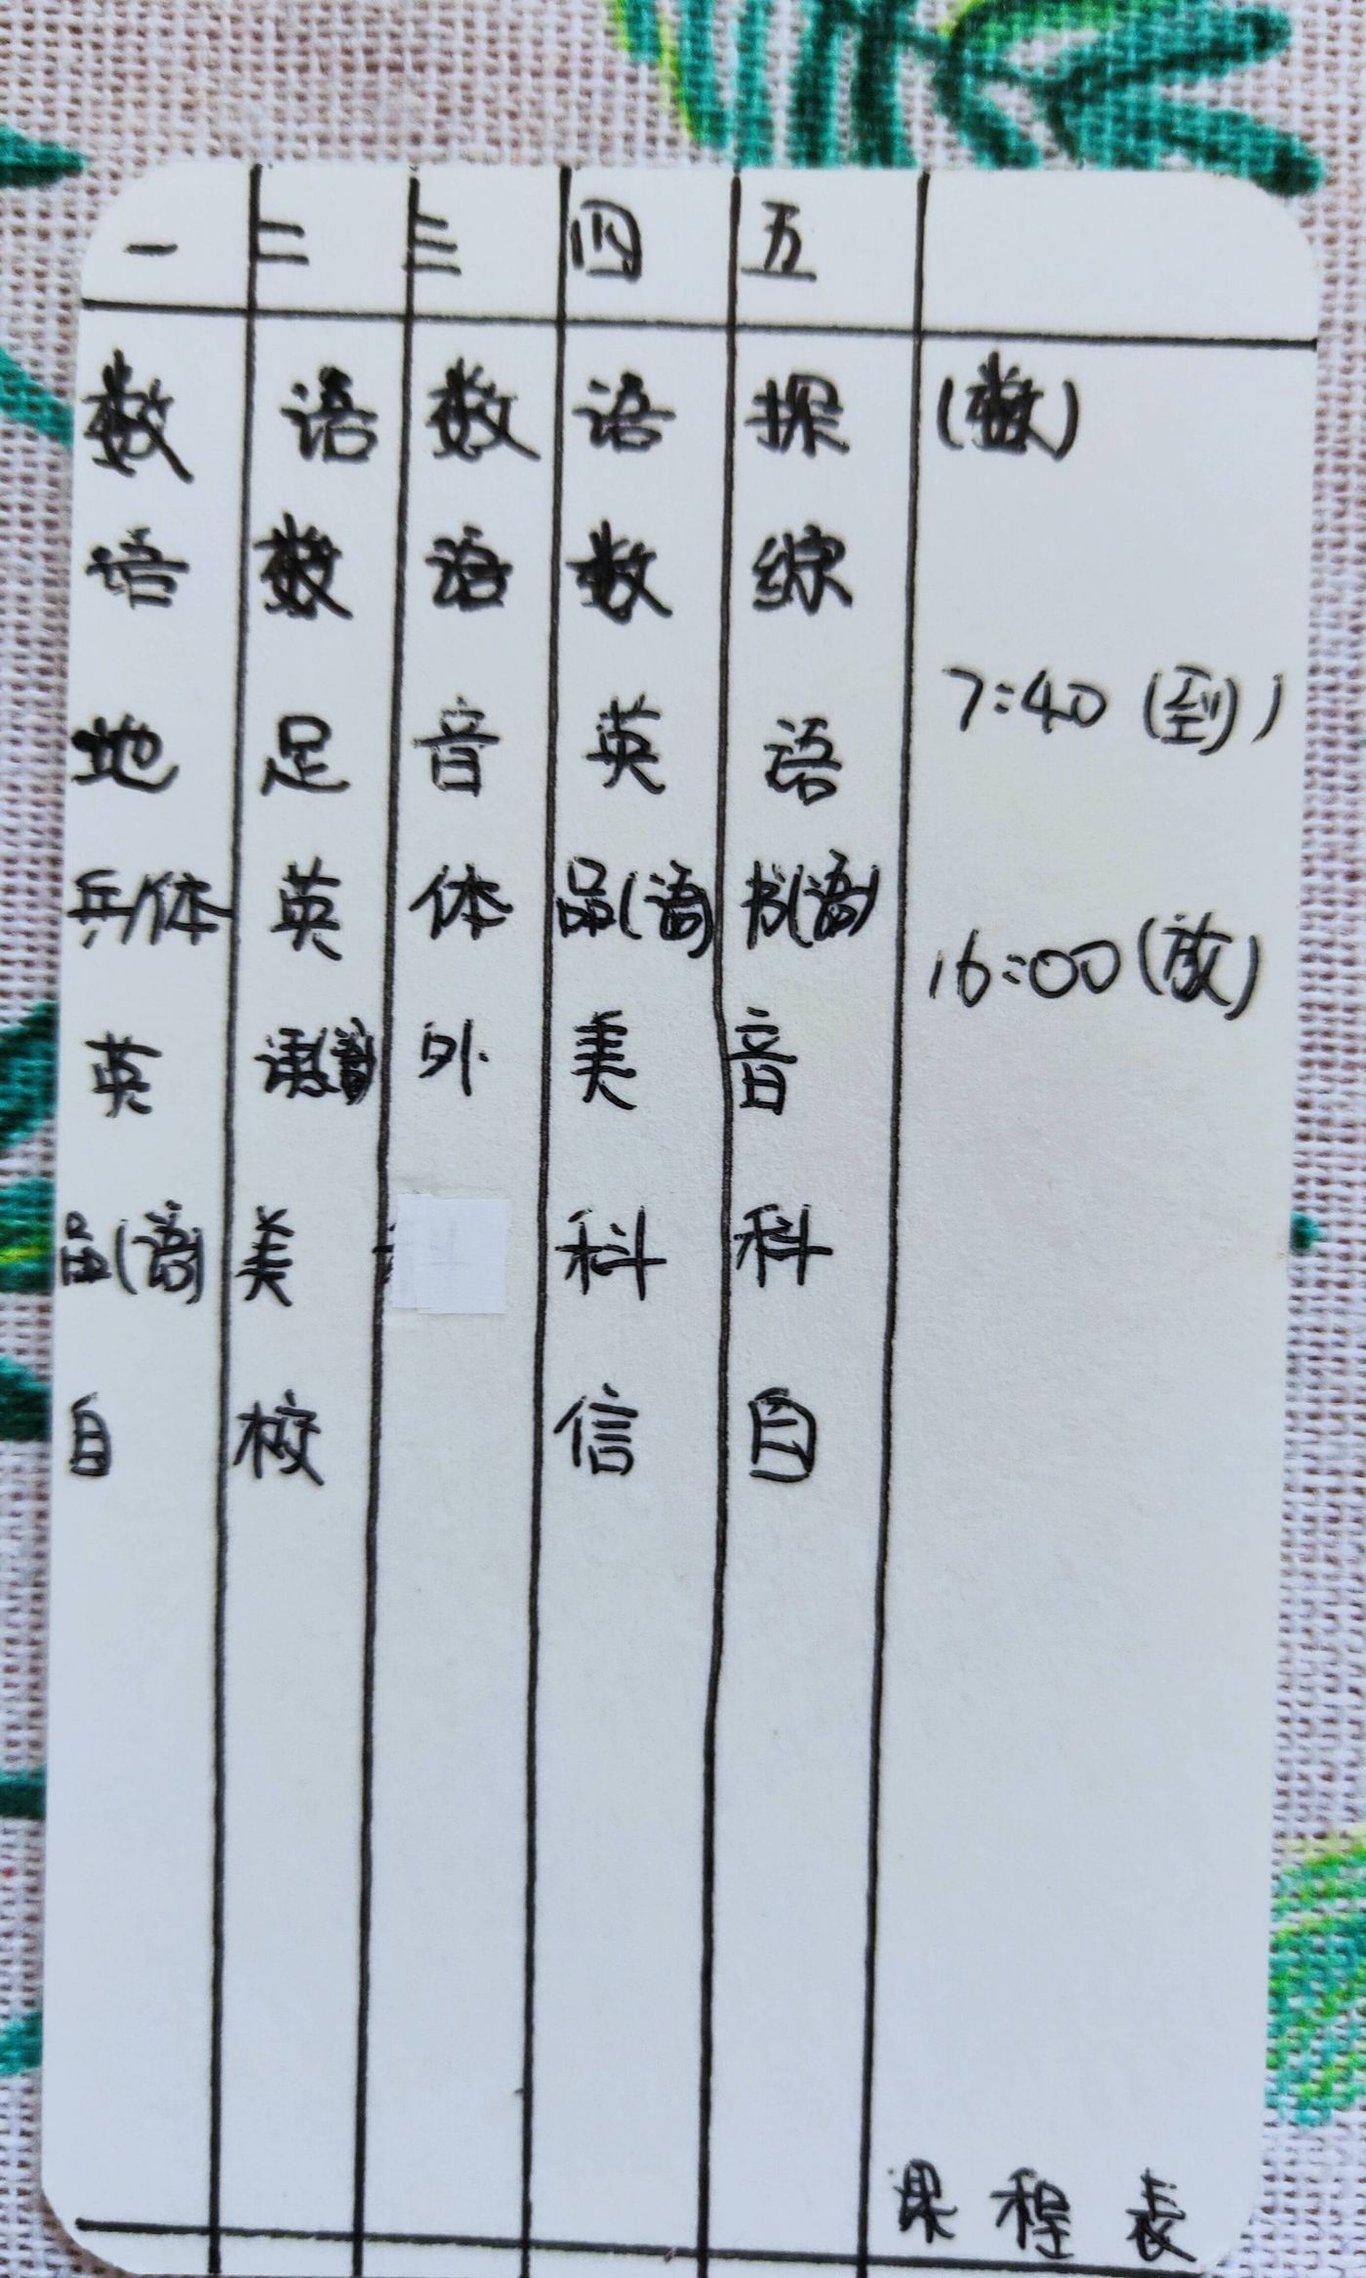 一 二 三 四 五
数 语 数 语 探 (数)
语 数 语 数 综
地 足 音 英 语 7:40 (到)
乒/体 英 体 品(语) 书(语) 16:00 (放)
英 外 美 音
品(语) 美 科 科
自 校 信 自
课程表